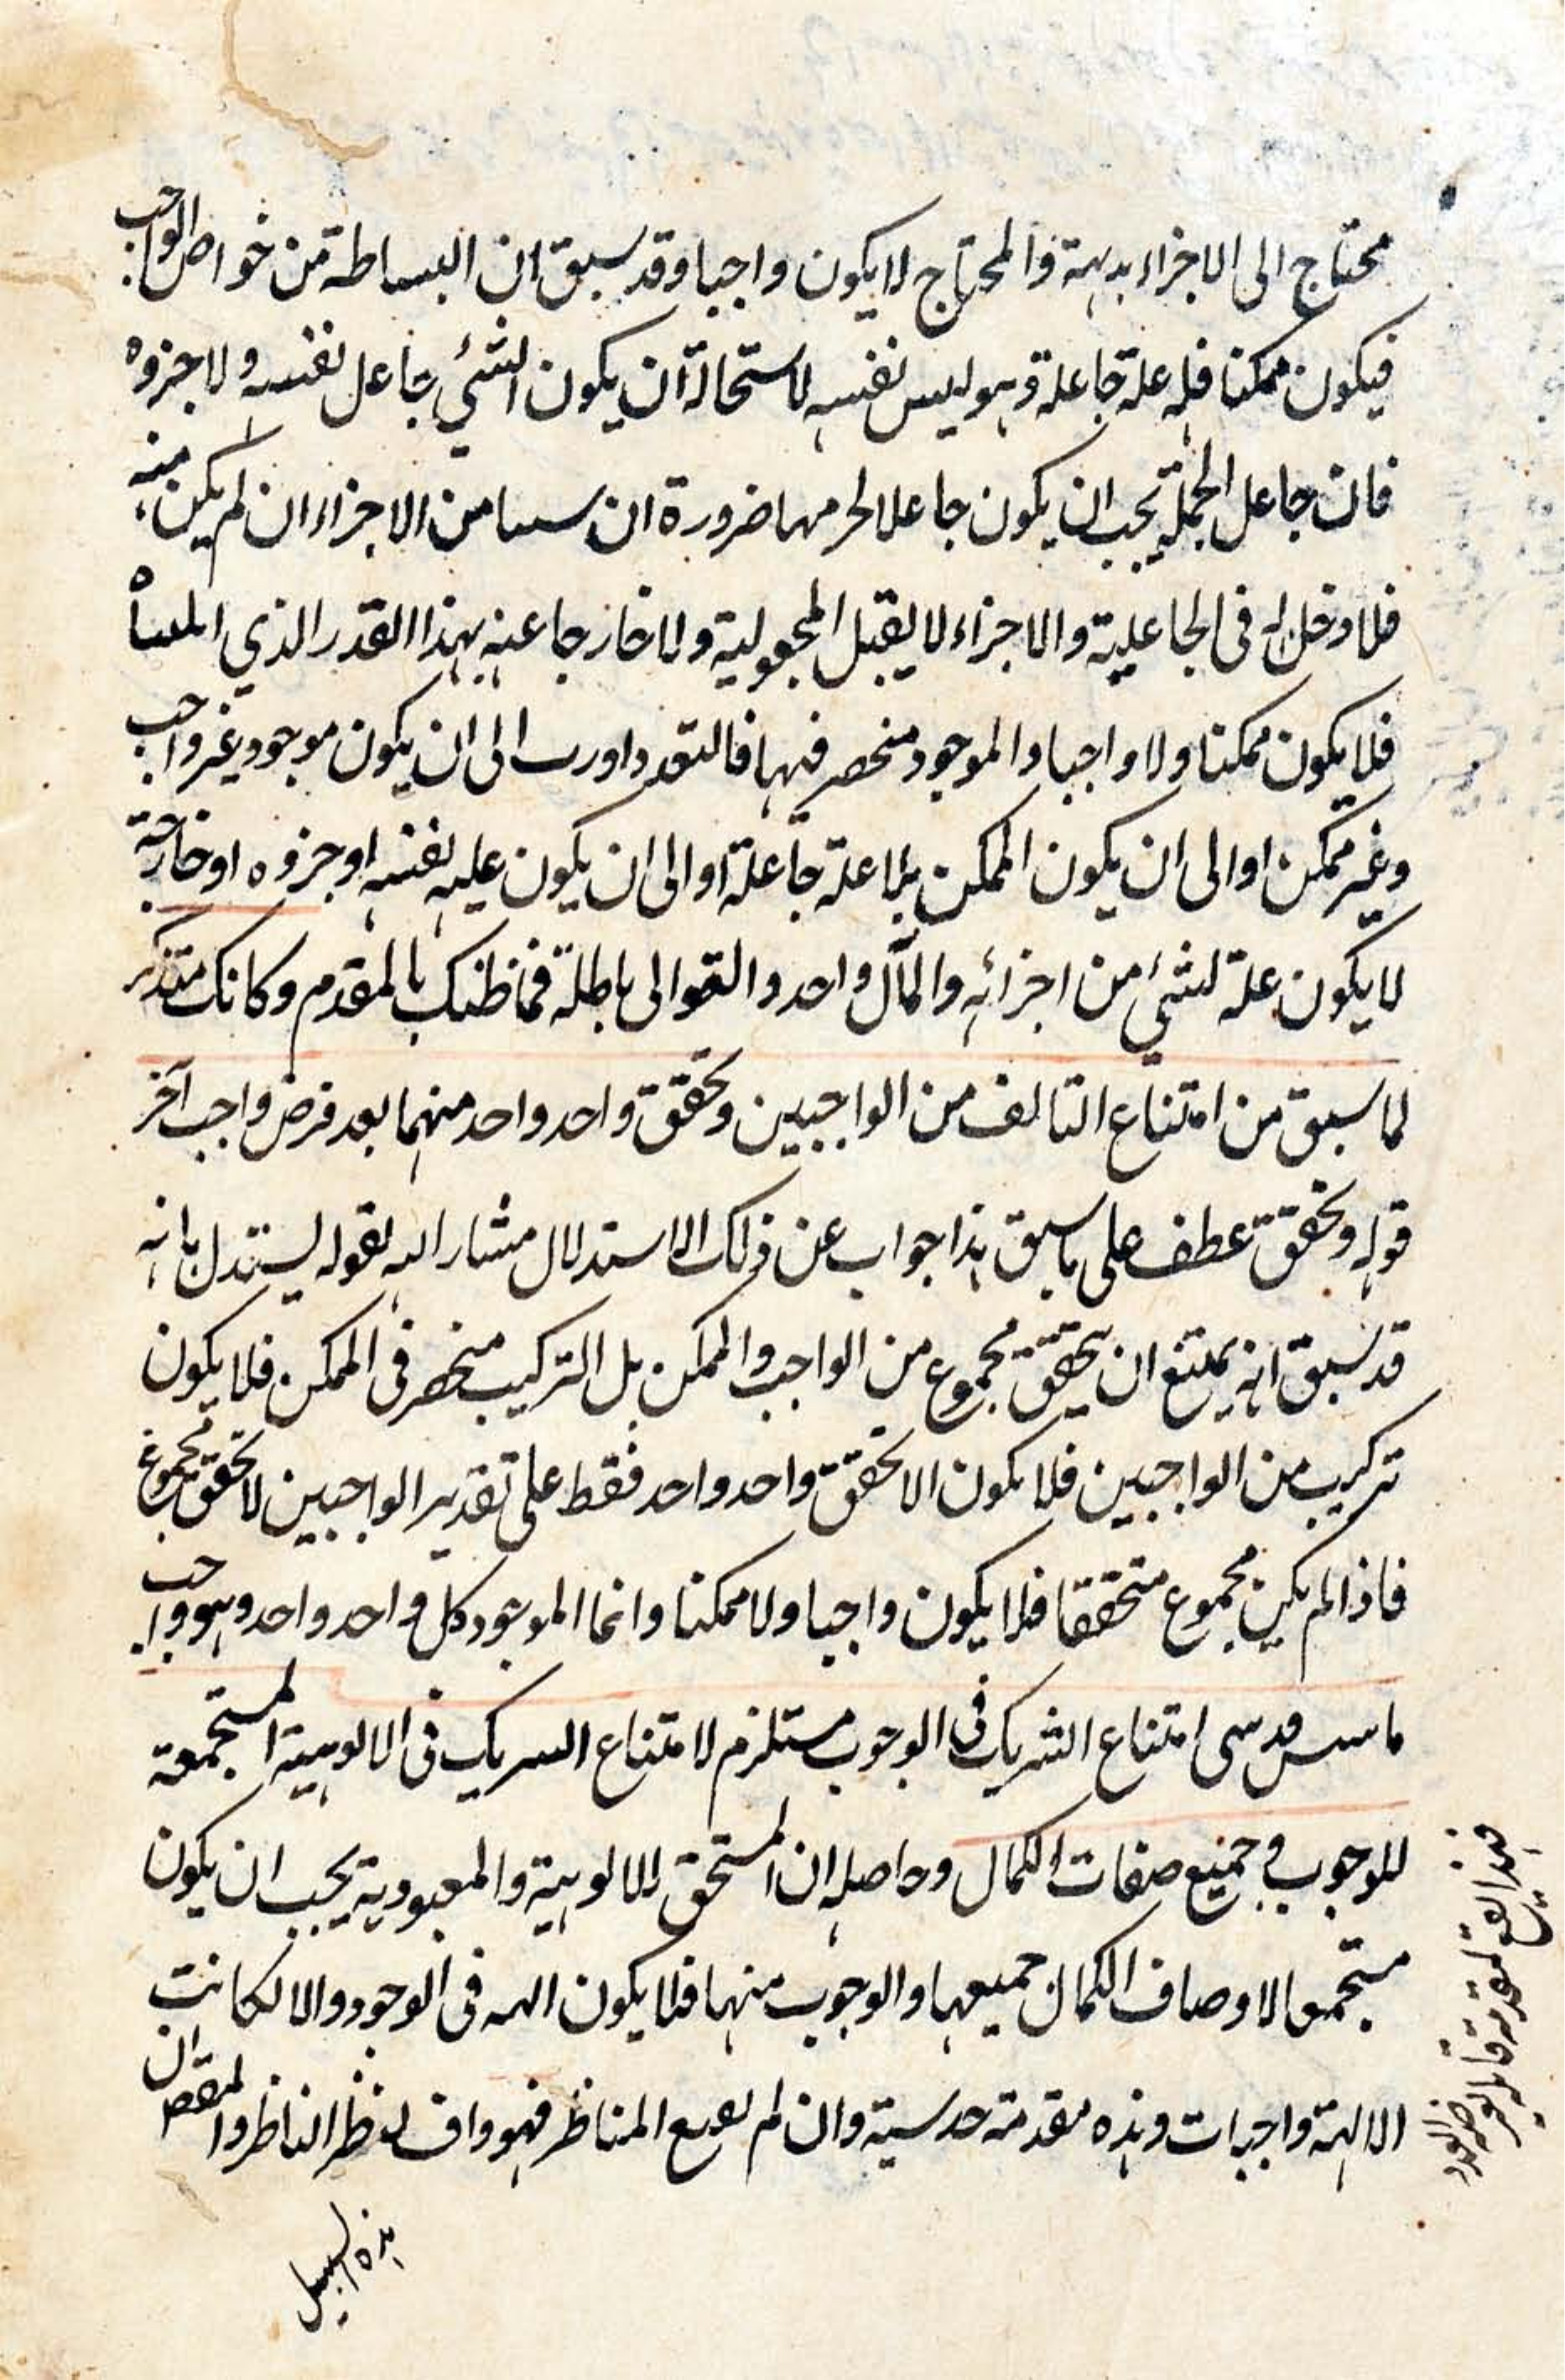 محتاج الى الاجزاء بديهة والمحتاج لا يكون واجبا وقد سبق ان البساطة من خواص الواجب
فيكون ممكنا فله علة جاعلة وهو ليس نفسه لاستحالة ان يكون الشئ جاعل نفسه ولا جزوه
فان جاعل الجملة يجب ان يكون جاعلا لجزء منها ضرورة ان سببا من الاجزاء ان لم يكن منه
فلا دخل له فى الجاعلية والاجزاء لا يقبل المجعولية ولا خارجا عنه بهذا القدر الذي
فلا يكون ممكنا ولا واجبا والموجود منحصر فيهما فالتعدد اورث الى ان يكون موجود غير واجب
وغير ممكن او الى ان يكون الممكن بلا علة جاعلة او الى ان يكون عليه نفسه او جزوه او خارجة
لا يكون علة لشئ من اجزائه والمآل واحد والتوالى باطلة فما ظنك بالمقدم وكانك متذكر
لما سبق من امتناع التالف من الواجبين وتحقق واحد واحد منهما بعد فرض واجب آخر
قوله وتحقق عطف على ما سبق هذا جواب عن ذلك الاستدلال مشار اليه بقوله يستدل بانه
قد سبق انه يمتنع ان يتحقق مجموع من الواجب والممكن بل التركيب منحصر فى الممكن فلا يكون
تركيب من الواجبين فلا يكون الا تحقق واحد واحد فقط على تقدير الواجبين لا تحقق مجموع
فاذا لم يكن مجموع متحققا فلا يكون واجبا ولا ممكنا وانما الموجود كل واحد واحد وهو واجب
امتناع الشريك فى الوجوب مستلزم لامتناع الشريك فى الالوهية المستجمعة
للوجوب و جميع صفات الكمال وحاصله ان المستحق للالوهية والمعبودية يجب ان يكون
مستجمعا لاوصاف الكمال جميعها والوجوب منها فلا يكون الهه فى الوجود والا لكانت
الالهة واجبات وهذه مقدمة حدسية وان لم المناظر فهو واف لنظر الناظر وا ان
هذه السبيل
فهذا